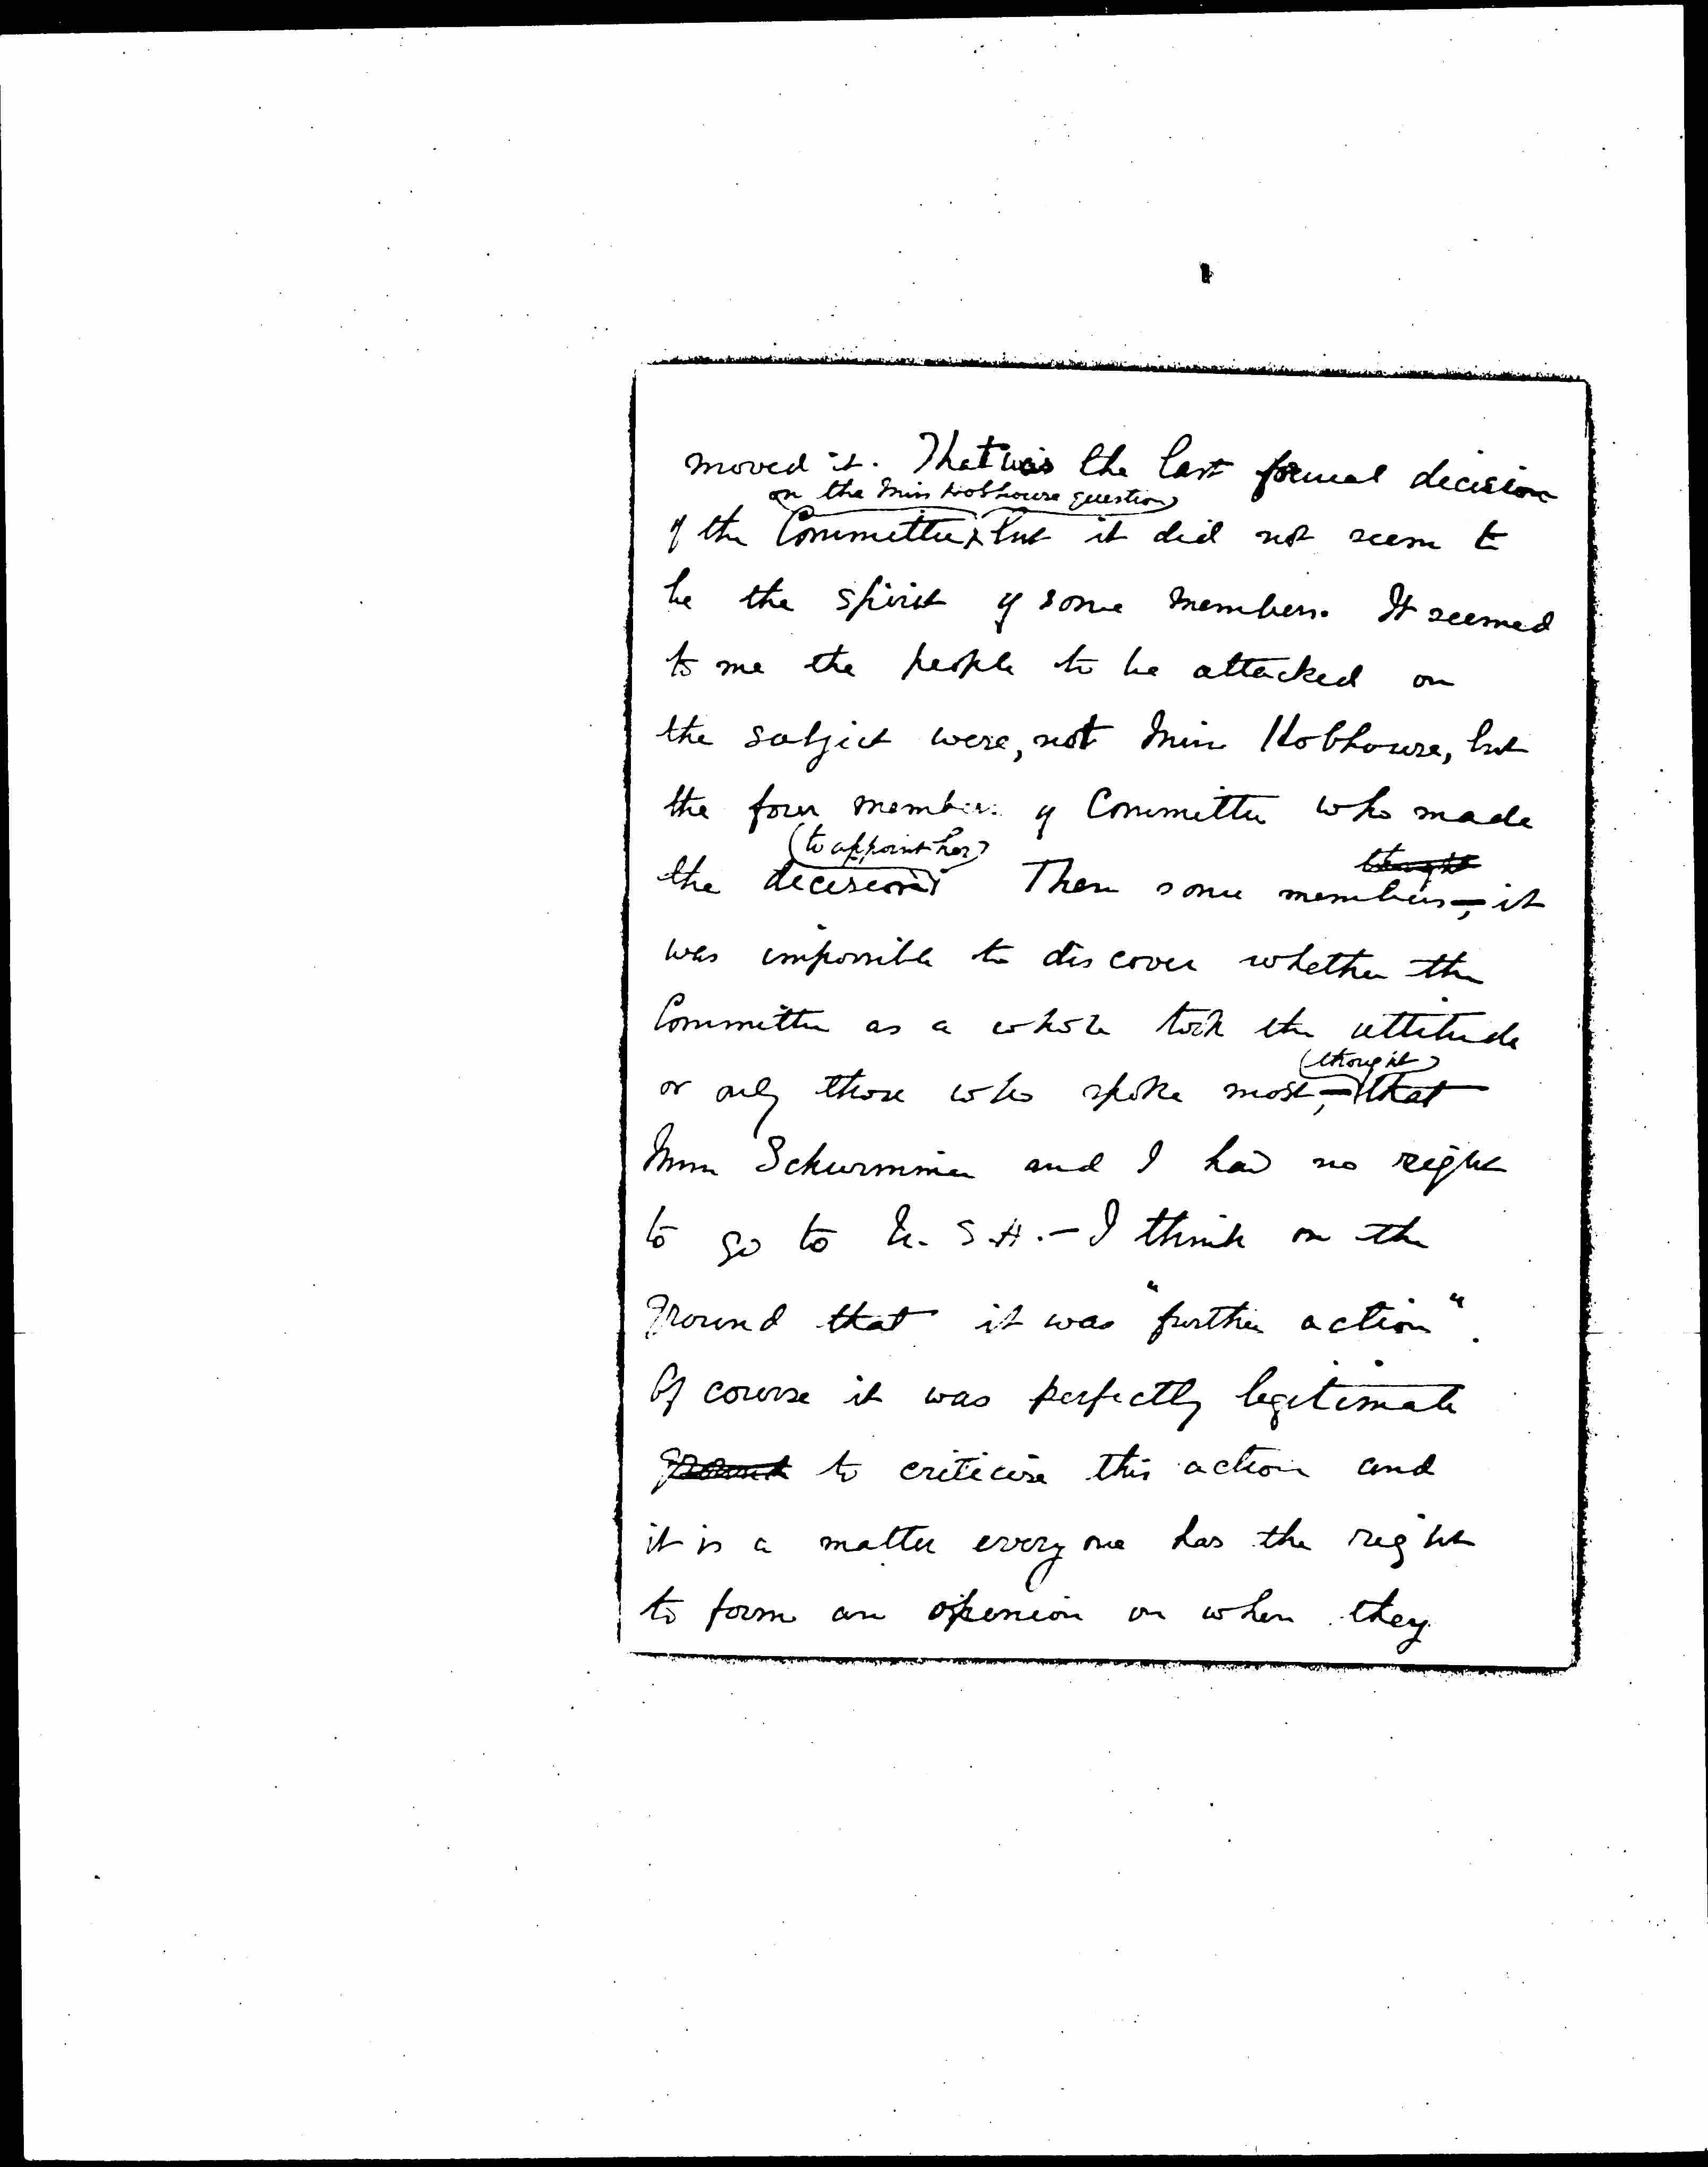 moved it. That was the last formal decision
on the Miss Hobhouse question
of the Committee, but it did not seem to
be the spirit of some members. It seemed
to me the people to be attacked on
the subject were, not Miss Hobhouse, but
the four members of Committee who made
(to appoint her)
the decision. Then some members thought —, it
was impossible to discover whether the
Committee as a whole took the attitude
or only those who spoke most, —
(thought)
that
Mme Schwimmer and I had no right
to go to U.S.A. — I think on the
ground that it was "further action".
Of course it was perfectly legitimate
ground to criticise this action and
it is a matter every one has the right
to form an opinion on when they